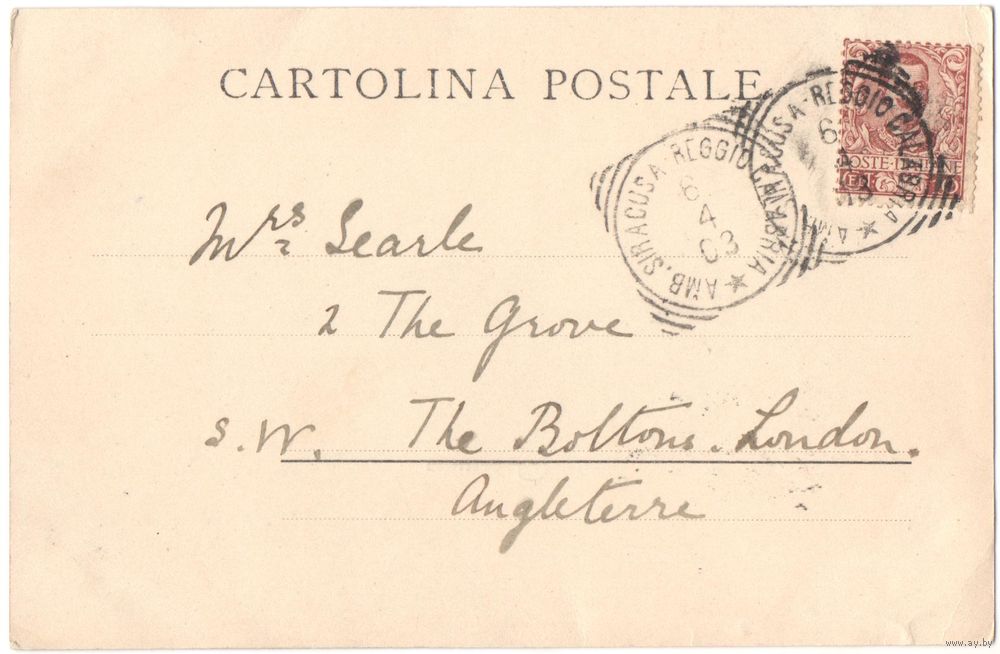 CARTOLINA POSTALE
AMB. SIRACUSA-REGGIO CALABRIA
6
4
03
AMB. SIRACUSA-REGGIO CALABRIA
6
4
03
POSTE
Mrs Searle
2 The Grove
S.W. The Boltons. London.
Angleterre
www.ay.by